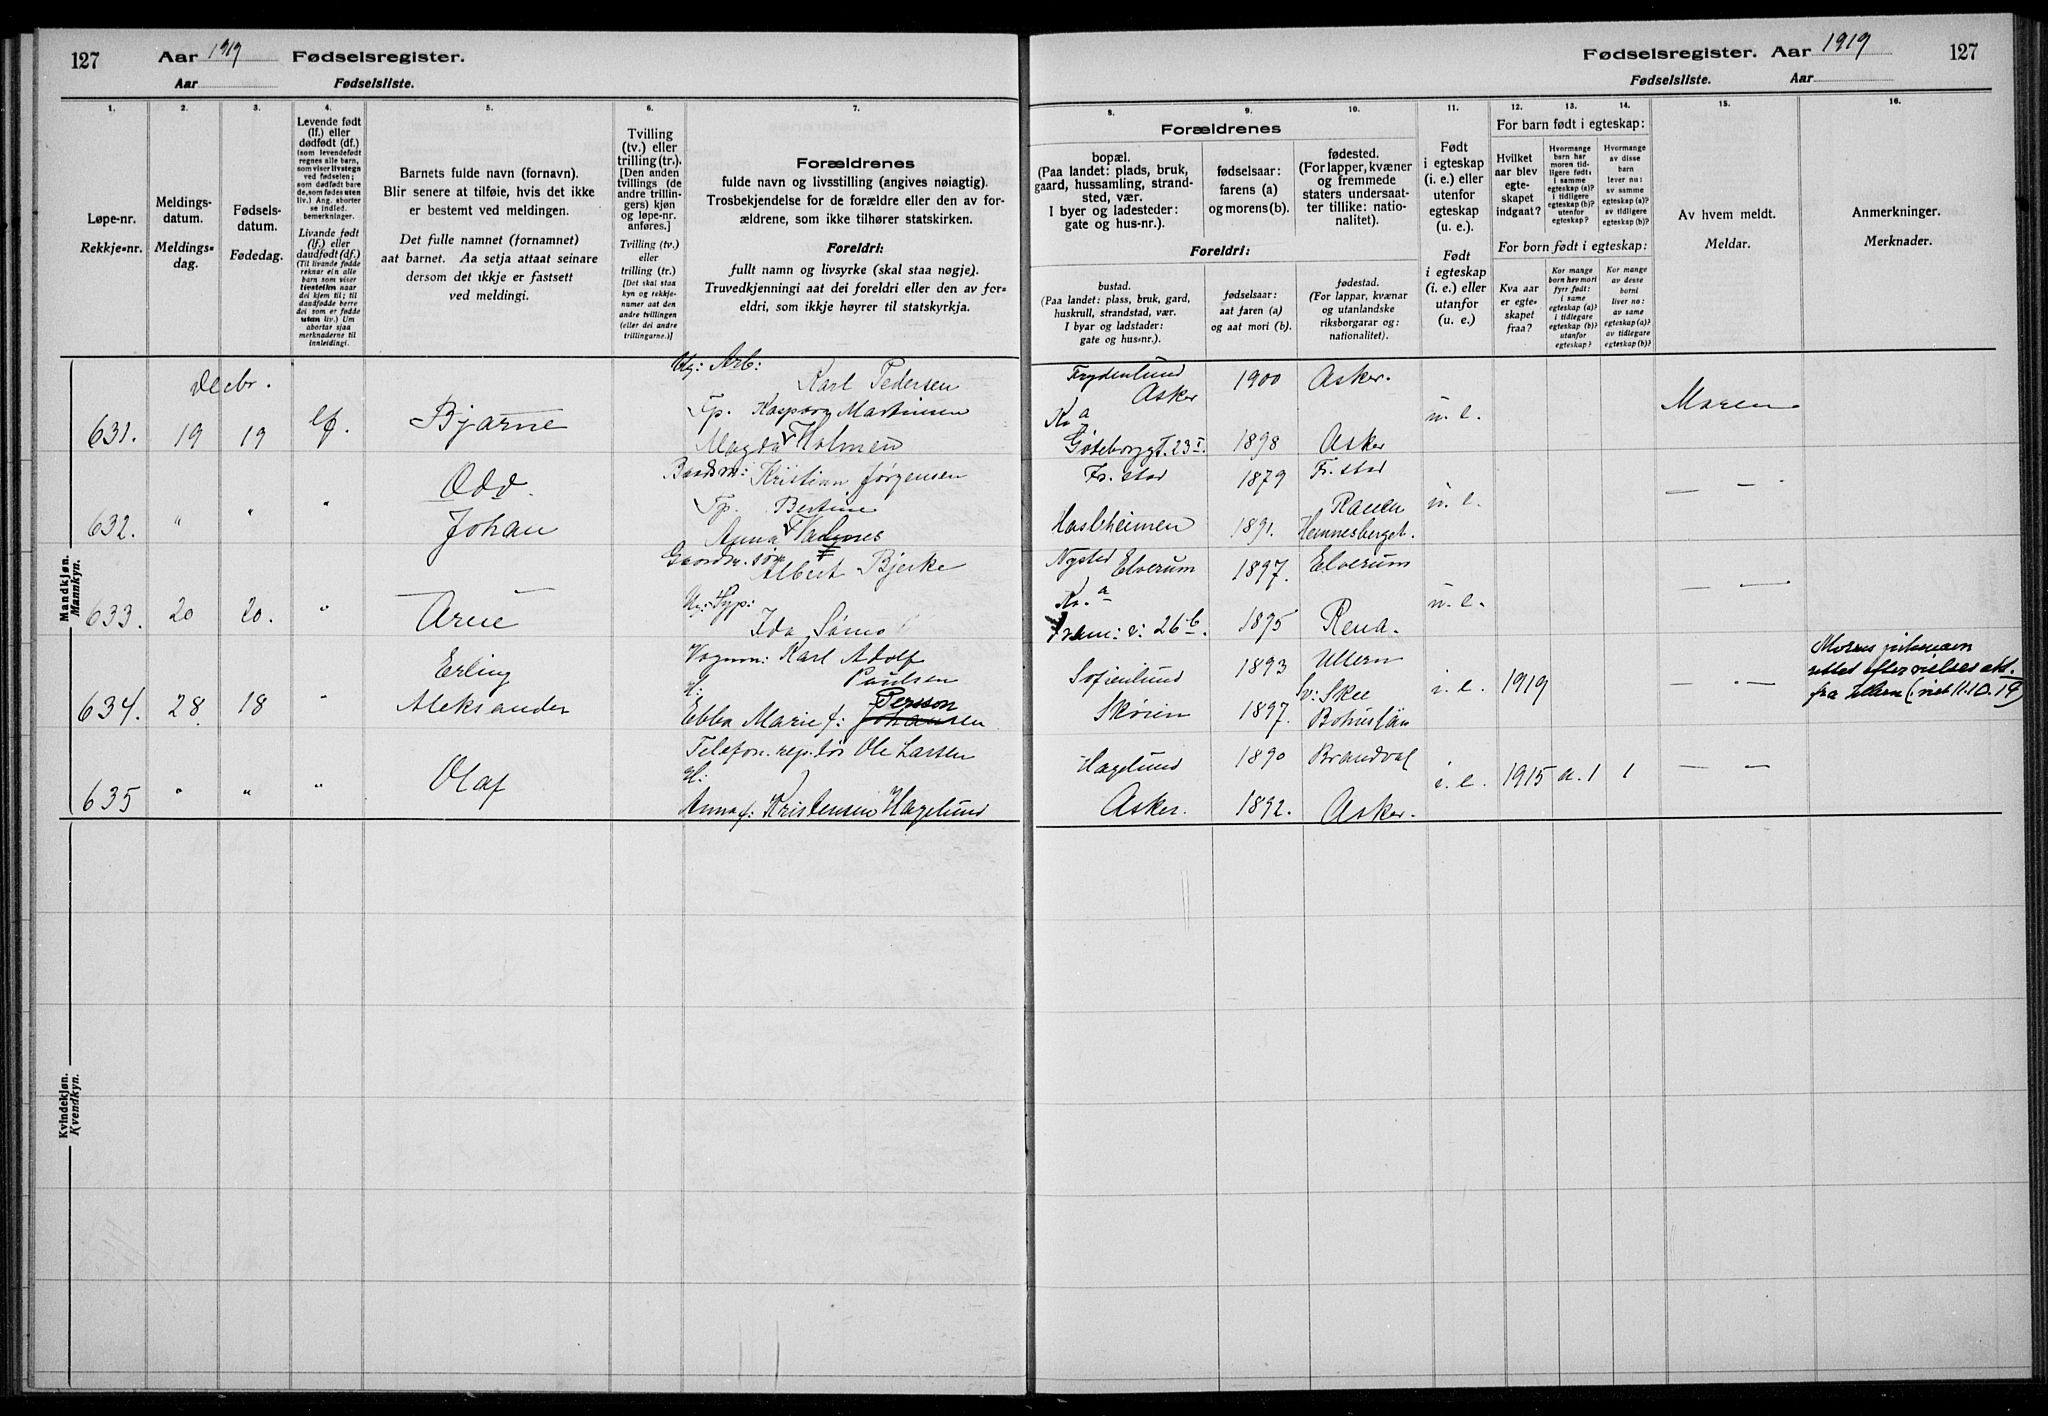 127 Aar 1919 Fødselsregister.
Aar Fødselsliste.
Fødselsregister. Aar 1919 127
Fødselsliste. Aar
1. 2. 3. 4. 5. 6. 7.
Løpe-nr.
Rekkje-nr.
Meldings-
datum.
Meldings-
dag.
Fødsels-
datum.
Fødedag.
Levende født
(lf.) eller
dødfødt (df.)
(som levendefødt
regnes alle barn,
som viser livstegn
ved fødselen;
som dødfødt bare
de, som fødes uten
liv.) Ang. aborter
se indled.
bemerkninger.
Livande født
(lf.) eller
daudfødt (df.)
(Til livande fødde
reknar ein alle
barn som viser
livsteikn naar
dei kjem til; til
daudfødde berre
dei som er fødde
utan liv.) Um
abortar sjaa
merknaderne til
innleidingi.
Barnets fulde navn (fornavn).
Blir senere at tilføie, hvis det ikke
er bestemt ved meldingen.
Det fulle namnet (fornamnet)
aat barnet. Aa setja attaat seinare
dersom det ikkje er fastsett
ved meldingi.
Tvilling
(tv.) eller
trilling (tr.).
[Den anden
tvillings (de
andre trillin-
gers) kjøn
og løpe-nr.
anføres.]
Tvilling (tv.)
eller
trilling (tr.)
[Det skal staa
kyn og rekkje-
numer aat den
andre tvillingen
(eller dei andre
trillingarne.)]
Forældrenes
fulde navn og livsstilling (angives nøiagtig).
Trosbekjendelse for de forældre eller den av for-
ældrene, som ikke tilhører statskirken.
Foreldri:
fullt namn og livsyrke (skal staa nøgje).
Truvedkjenningi aat dei foreldri eller den av for-
eldri, som ikkje høyrer til statskyrkja.
8. 9. 10. 11. 12. 13. 14. 15. 16.
Forældrenes
bopæl.
(Paa landet: plads, bruk,
gaard, hussamling, strand-
sted, vær.
I byer og ladesteder:
gate og hus-nr.).
fødselsaar:
farens (a)
og morens (b).
fødested.
(For lapper, kvæner
og fremmede
staters undersaat-
ter tillike: natio-
nalitet).
Foreldri:
bustad.
(Paa landet: plass, bruk, gard,
huskrull, strandstad, vær.
I byar og ladstader:
gate og hus-nr.).
fødselsaar:
aat faren (a)
og aat mori (b).
fødestad.
(For lappar, kvænar
og utanlandske
riksborgarar og:
nationalitet).
Født
i egteskap
(i. e.) eller
utenfor
egteskap
(u. e.).
Født
i egteskap
(i. e.) eller
utanfor
(u. e.).
For barn født i egteskap:
Hvilket
aar blev
egte-
skapet
indgaat?
Hvormange
barn har
moren tid-
ligere født:
i samme
egteskap (a)?
i tidligere
egteskap (b)?
utenfor
egteskap?
Hvormange
av disse
barn
lever nu:
av samme
egteskap (a)?
av tidligere
egteskap (b)?
For born født i egteskap:
Kva aar
er egte-
skapet
fraa?
Kor mange
born hev mori
fyrr født:
i same
egteskap (a)?
i tidlegare
egteskap (b)?
utanfor
egteskap?
Kor mange
av desse
borni
liver no:
av same
egteskap (a)?
av tidlegare
egteskap (b)?
Av hvem meldt.
Meldar.
Anmerkninger.
Merknader.
Mandkjøn.
Mannkyn.
Decbr.
Ug: Arb:
Karl Pedersen
Frydenlund
Asker
1900 Asker.
631. 19 19 lf. Bjarne
Tp. Kaspara Martinsen
Magda Holmen
Kr.a
Göteborggt. 23 I. 1898 Asker u. e. Maren
Odd
Johan
632. " " "
Baadsm: Kristian Jørgensen
Tp. Bertine
Anna
Fr. stad 1879 Fr. stad
1891. Ranen
Hemnesberget. u. e. — —
Gaardm. søn
Albert Bjerke
Nysted Elverum 1897. Elverum
633. 20 20. " Arne
Ug: Syp:
Ida
Kr.a
Fram: v: 26 b. 1895 Rena. u. e. — —
634. 28 18 " Erling
Aleksander
Vognm: Karl Adolf
Paulsen
H: Persson
Ebba Marie f: Johansen
Sofienlund 1893 Ullern
Skøien 1897. Sv: Skee
Bohuslän i. e. 1919 — —
Mores pikenavn
rettet efter vielses att.
fra Ullern (viet 11.10.19)
635 " " " Olaf
Telefon. rep.tör Ole Larsen
H:
Anna f: Kristensen Hagelund
Hagelund 1890 Brandval
Asker. 1892. Asker. i. e. 1915 a. 1 1 — —
Kvindekjøn.
Kvendkyn.